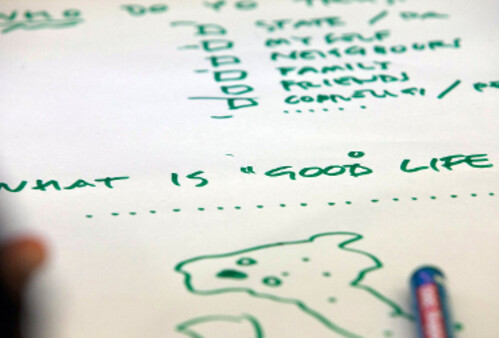 WHO DO YO
STATE /
MYSELF
NEIGHBOURS
FAMILY
FRIENDS
WHAT IS "GOOD LIFE